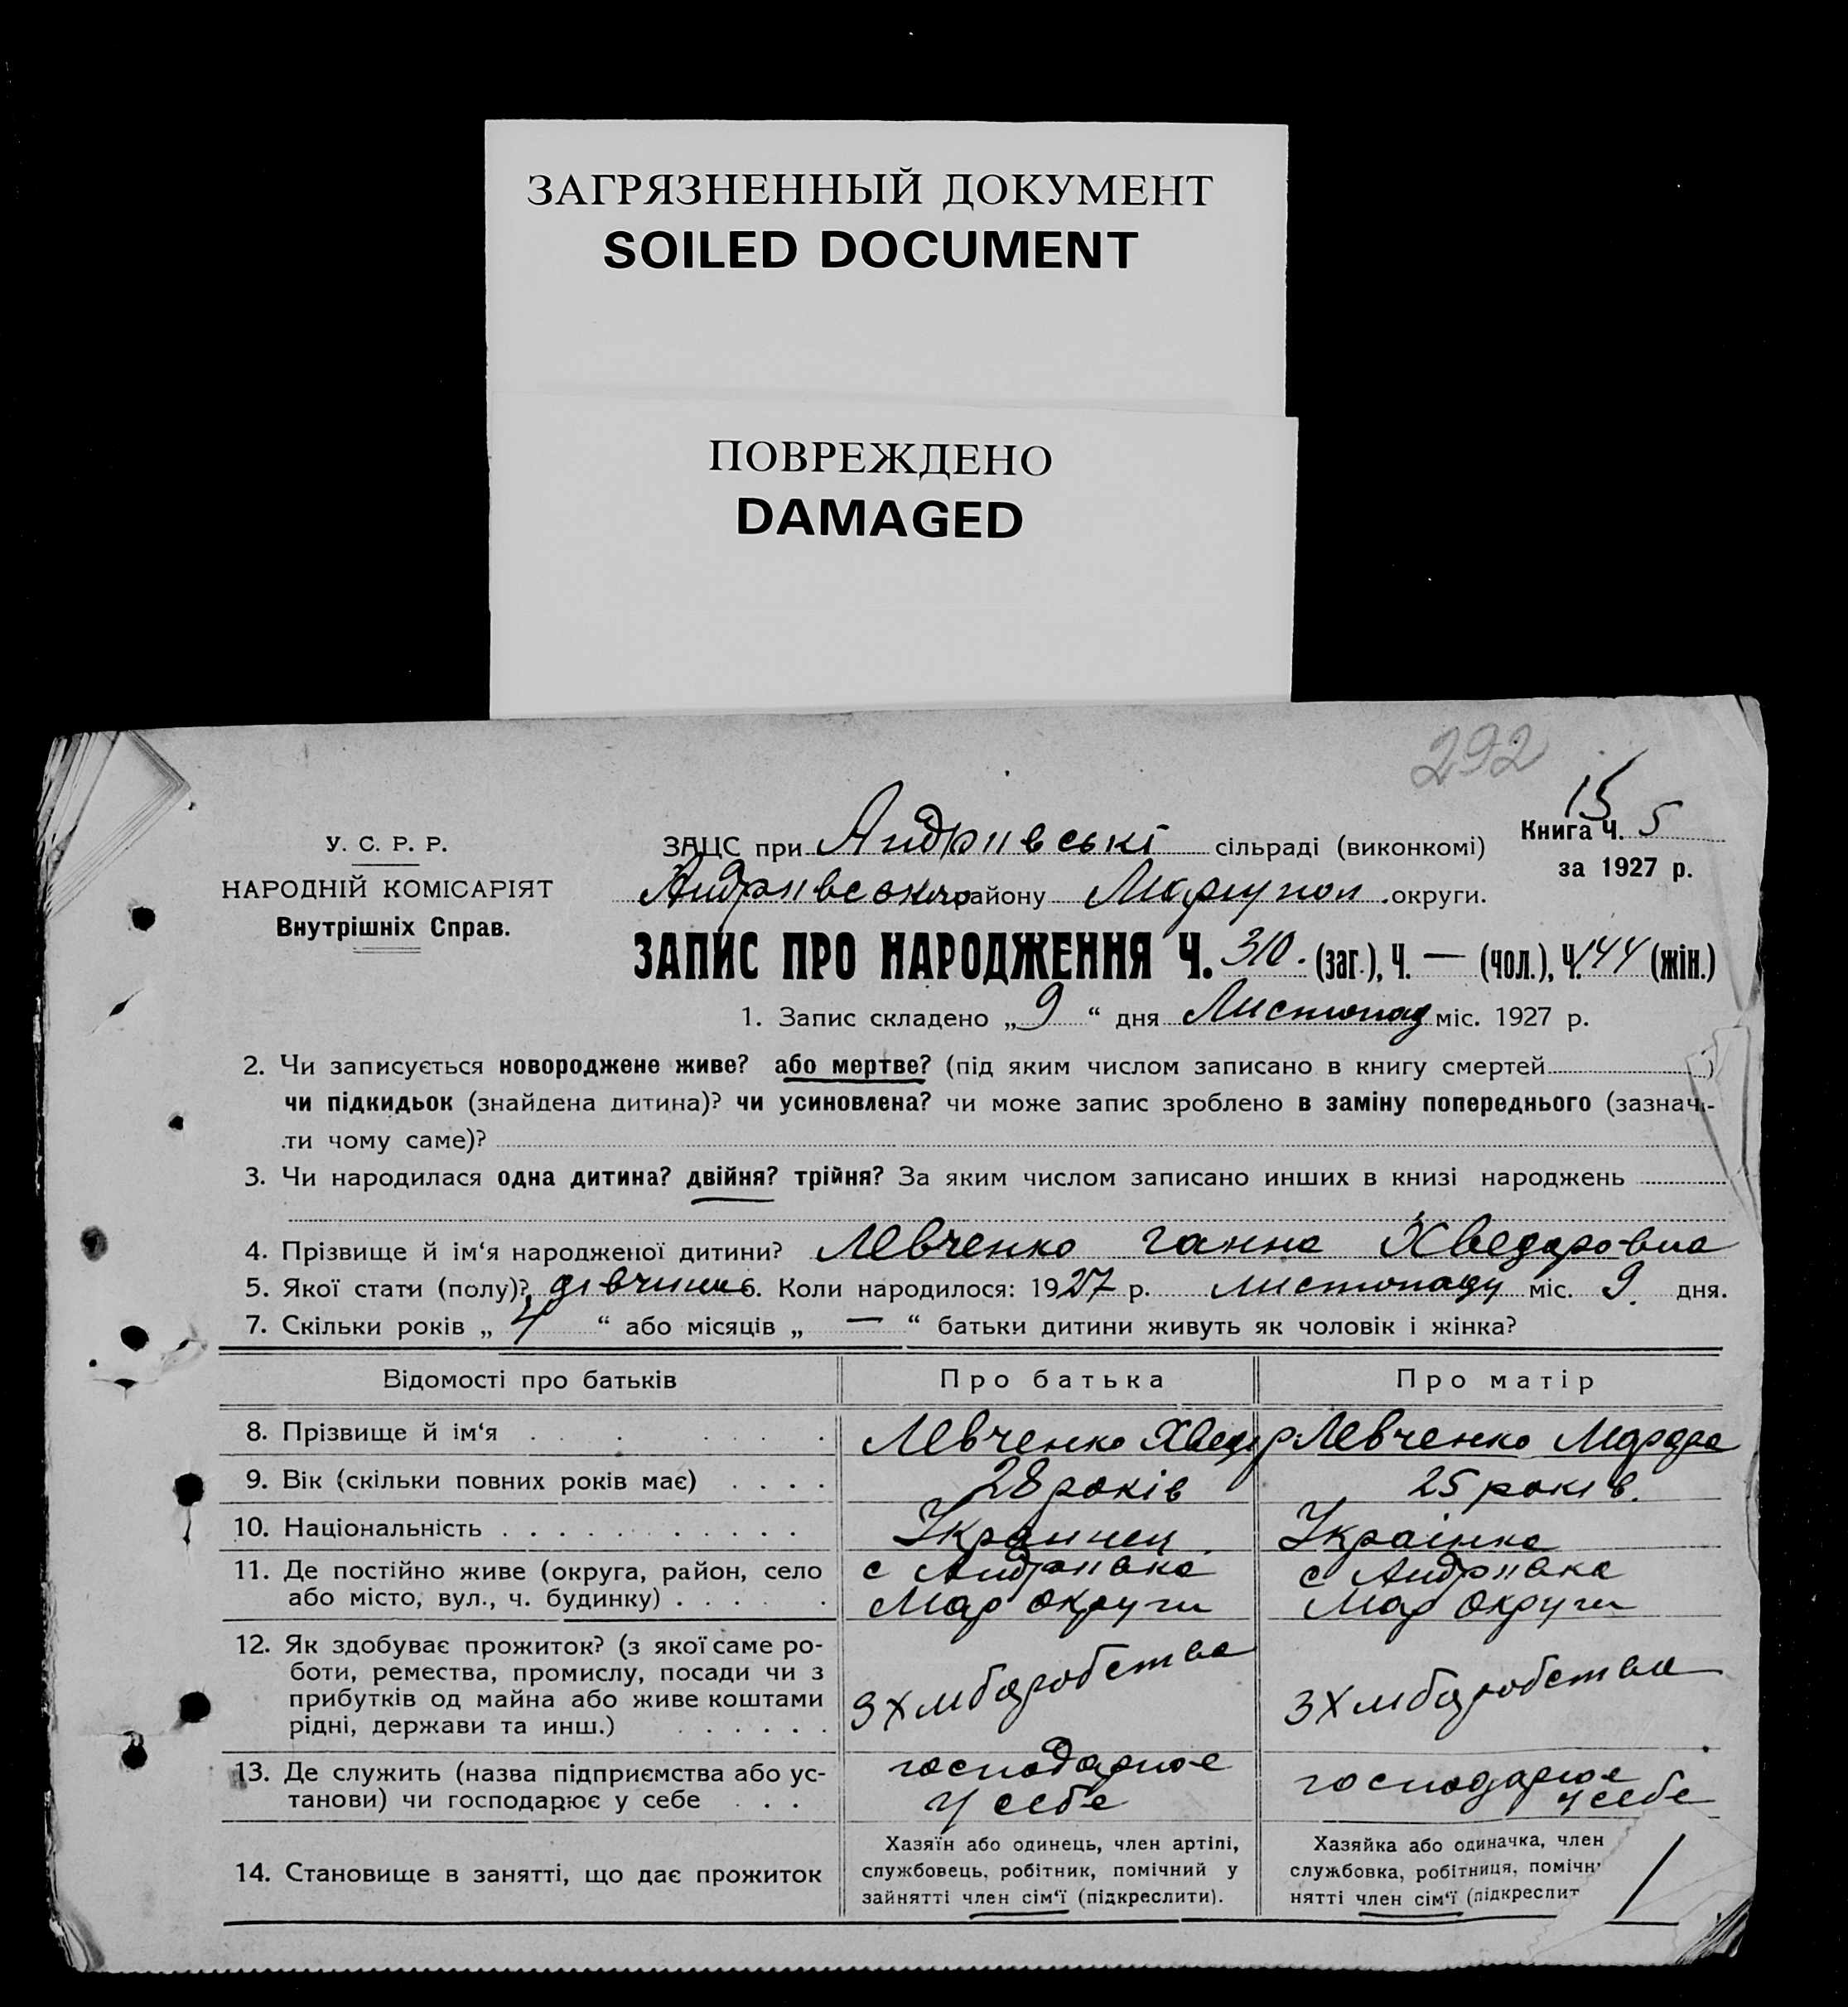 ЗАГРЯЗНЕННЫЙ ДОКУМЕНТ
SOILED DOCUMENT
ПОВРЕЖДЕНО
DAMAGED
292
15
У. С. Р. Р.
НАРОДНІЙ КОМІСАРІЯТ
Внутрішніх Справ.
ЗАЦС при Андріївські сільраді (виконкомі)
Книга Ч. 5
за 1927 р.
Андріївського району Маріупол. округи.
ЗАПИС ПРО НАРОДЖЕННЯ Ч. 310. (заг.), Ч. — (чол.), Ч. 144 (жін.)
1. Запис складено „ 9 “ дня Листопад міс. 1927 р.
2. Чи записується новороджене живе? або мертве? (під яким числом записано в книгу смертей )
чи підкидьок (знайдена дитина)? чи усиновлена? чи може запис зроблено в заміну попереднього (зазначи-
ти чому саме)?
3. Чи народилася одна дитина? двійня? трійня? За яким числом записано инших в книзі народжень
4. Прізвище й ім‘я народженої дитини? Левченко Ганна Хведоровна
5. Якої стати (полу)? дівчина 6. Коли народилося: 1927 р. листопаду міс. 9. дня.
7. Скільки років „ 4 “ або місяців „ — “ батьки дитини живуть як чоловік і жінка?
Відомості про батьків Про батька Про матір
8. Прізвище й ім‘я Левченко Хведір Левченко
9. Вік (скільки повних років має) 28 років 25 років.
10. Національність Украинец Українка
11. Де постійно живе (округа, район, село с Андріївка с Андріївка
або місто, вул., ч. будинку) Мар округи Мар округи
12. Як здобуває прожиток? (з якої саме ро-
боти, ремества, промислу, посади чи з
прибутків од майна або живе коштами
рідні, держави та инш.) З хліборобства З хліборобства
13. Де служить (назва підприємства або ус- господарює господарює
танови) чи господарює у себе у себе у себе
14. Становище в занятті, що дає прожиток
Хазяїн або одинець, член артілі,
службовець, робітник, помічний у
зайнятті член сім‘ї (підкреслити).
Хазяйка або одиначка, член
службовка, робітниця, помічн
нятті член сім‘ї (підкреслит